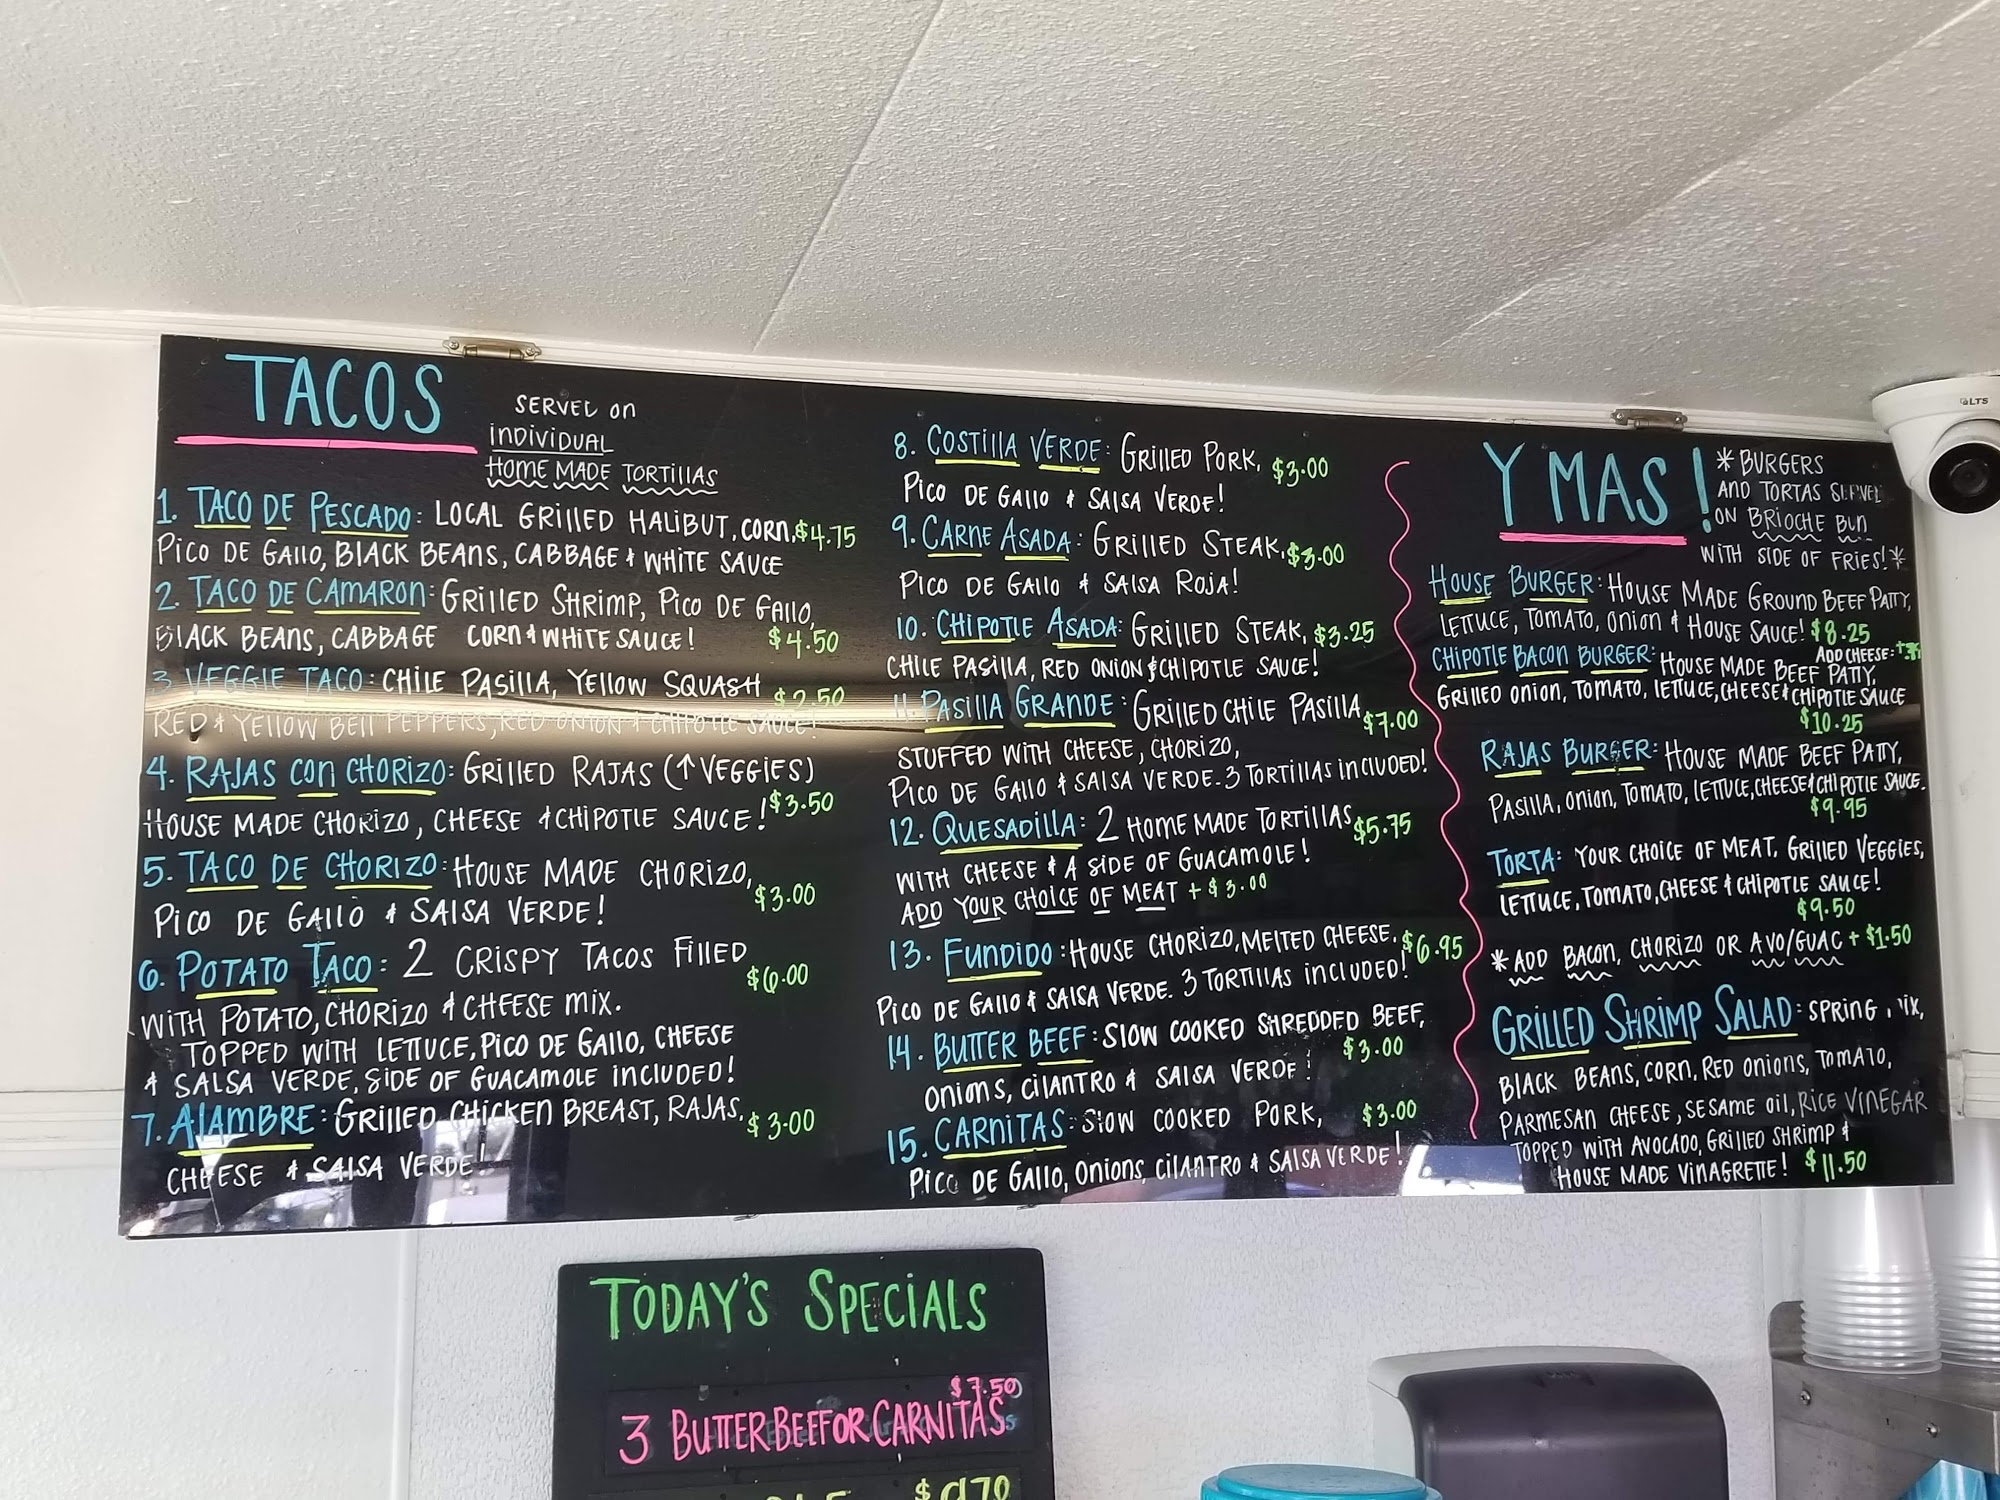 TACOS
SERVED on
INDIVIDUAL
HOME MADE TORTILLAS
1. TACO DE PESCADO: LOCAL GRILLED HALIBUT, CORN, $4.75
PICO DE GALLO, BLACK BEANS, CABBAGE & WHITE SAUCE
2. TACO DE CAMARON: GRILLED SHRIMP, PICO DE GALLO,
BLACK BEANS, CABBAGE CORN & WHITE SAUCE! $4.50
3 VEGGIE TACO: CHILE PASILLA, YELLOW SQUASH $2.50
RED & YELLOW BELL PEPPERS, RED ONION & CHIPOTLE SAUCE!
4. RAJAS CON CHORIZO: GRILLED RAJAS (↑ VEGGIES)
HOUSE MADE CHORIZO, CHEESE & CHIPOTLE SAUCE! $3.50
5. TACO DE CHORIZO: HOUSE MADE CHORIZO, $3.00
PICO DE GALLO & SALSA VERDE!
6. POTATO TACO: 2 CRISPY TACOS FILLED $6.00
WITH POTATO, CHORIZO & CHEESE MIX.
TOPPED WITH LETTUCE, PICO DE GALLO, CHEESE
& SALSA VERDE, SIDE OF GUACAMOLE INCLUDED!
7. ALAMBRE: GRILLED CHICKEN BREAST, RAJAS, $3.00
CHEESE & SALSA VERDE!
8. COSTILLA VERDE: GRILLED PORK, $3.00
PICO DE GALLO & SALSA VERDE!
9. CARNE ASADA: GRILLED STEAK, $3.00
PICO DE GALLO & SALSA ROJA!
10. CHIPOTLE ASADA: GRILLED STEAK, $3.25
CHILE PASILLA, RED ONION & CHIPOTLE SAUCE!
11. PASILLA GRANDE: GRILLED CHILE PASILLA $7.00
STUFFED WITH CHEESE, CHORIZO,
PICO DE GALLO & SALSA VERDE. 3 TORTILLAS INCLUDED!
12. QUESADILLA: 2 HOME MADE TORTILLAS $5.75
WITH CHEESE & A SIDE OF GUACAMOLE!
ADD YOUR CHOICE OF MEAT + $3.00
13. FUNDIDO: HOUSE CHORIZO, MELTED CHEESE, $6.95
PICO DE GALLO & SALSA VERDE. 3 TORTILLAS INCLUDED!
14. BUTTER BEEF: SLOW COOKED SHREDDED BEEF, $3.00
ONIONS, CILANTRO & SALSA VERDE!
15. CARNITAS: SLOW COOKED PORK, $3.00
PICO DE GALLO, ONIONS, CILANTRO & SALSA VERDE!
Y MAS!
* BURGERS
AND TORTAS SERVED
ON BRIOCHE BUN
WITH SIDE OF FRIES! *
HOUSE BURGER: HOUSE MADE GROUND BEEF PATTY,
LETTUCE, TOMATO, ONION & HOUSE SAUCE! $8.25
ADD CHEESE:
CHIPOTLE BACON BURGER: HOUSE MADE BEEF PATTY,
GRILLED ONION, TOMATO, LETTUCE, CHEESE & CHIPOTLE SAUCE
$10.25
RAJAS BURGER: HOUSE MADE BEEF PATTY,
PASILLA, ONION, TOMATO, LETTUCE, CHEESE & CHIPOTLE SAUCE.
$9.95
TORTA: YOUR CHOICE OF MEAT, GRILLED VEGGIES,
LETTUCE, TOMATO, CHEESE & CHIPOTLE SAUCE!
$9.50
* ADD BACON, CHORIZO OR AVO/GUAC + $1.50
GRILLED SHRIMP SALAD: SPRING MIX,
BLACK BEANS, CORN, RED ONIONS, TOMATO,
PARMESAN CHEESE, SESAME OIL, RICE VINEGAR
TOPPED WITH AVOCADO, GRILLED SHRIMP &
HOUSE MADE VINAGRETTE! $11.50
LTS
TODAY'S SPECIALS
$7.50
3 BUTTER BEEF OR CARNITAS